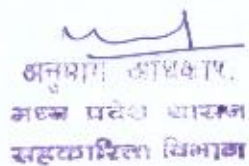 अनुभाग अधिकारी.
मध्य प्रदेश शासन
सहकारिता विभाग